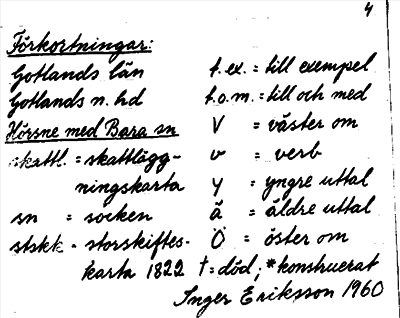 4
Förkortningar:
Gotlands län
Gotlands n. hd
Hörsne med Bara sn
skattl. = skattlägg-
ningskarta
sn = socken
stskk = storskiftes-
karta 1822
t.ex. = till exempel
t.o.m. = till och med
V = väster om
v = verb
y = yngre uttal
ä = äldre uttal
Ö = öster om
† = död; *konstruerat
Inger Eriksson 1960